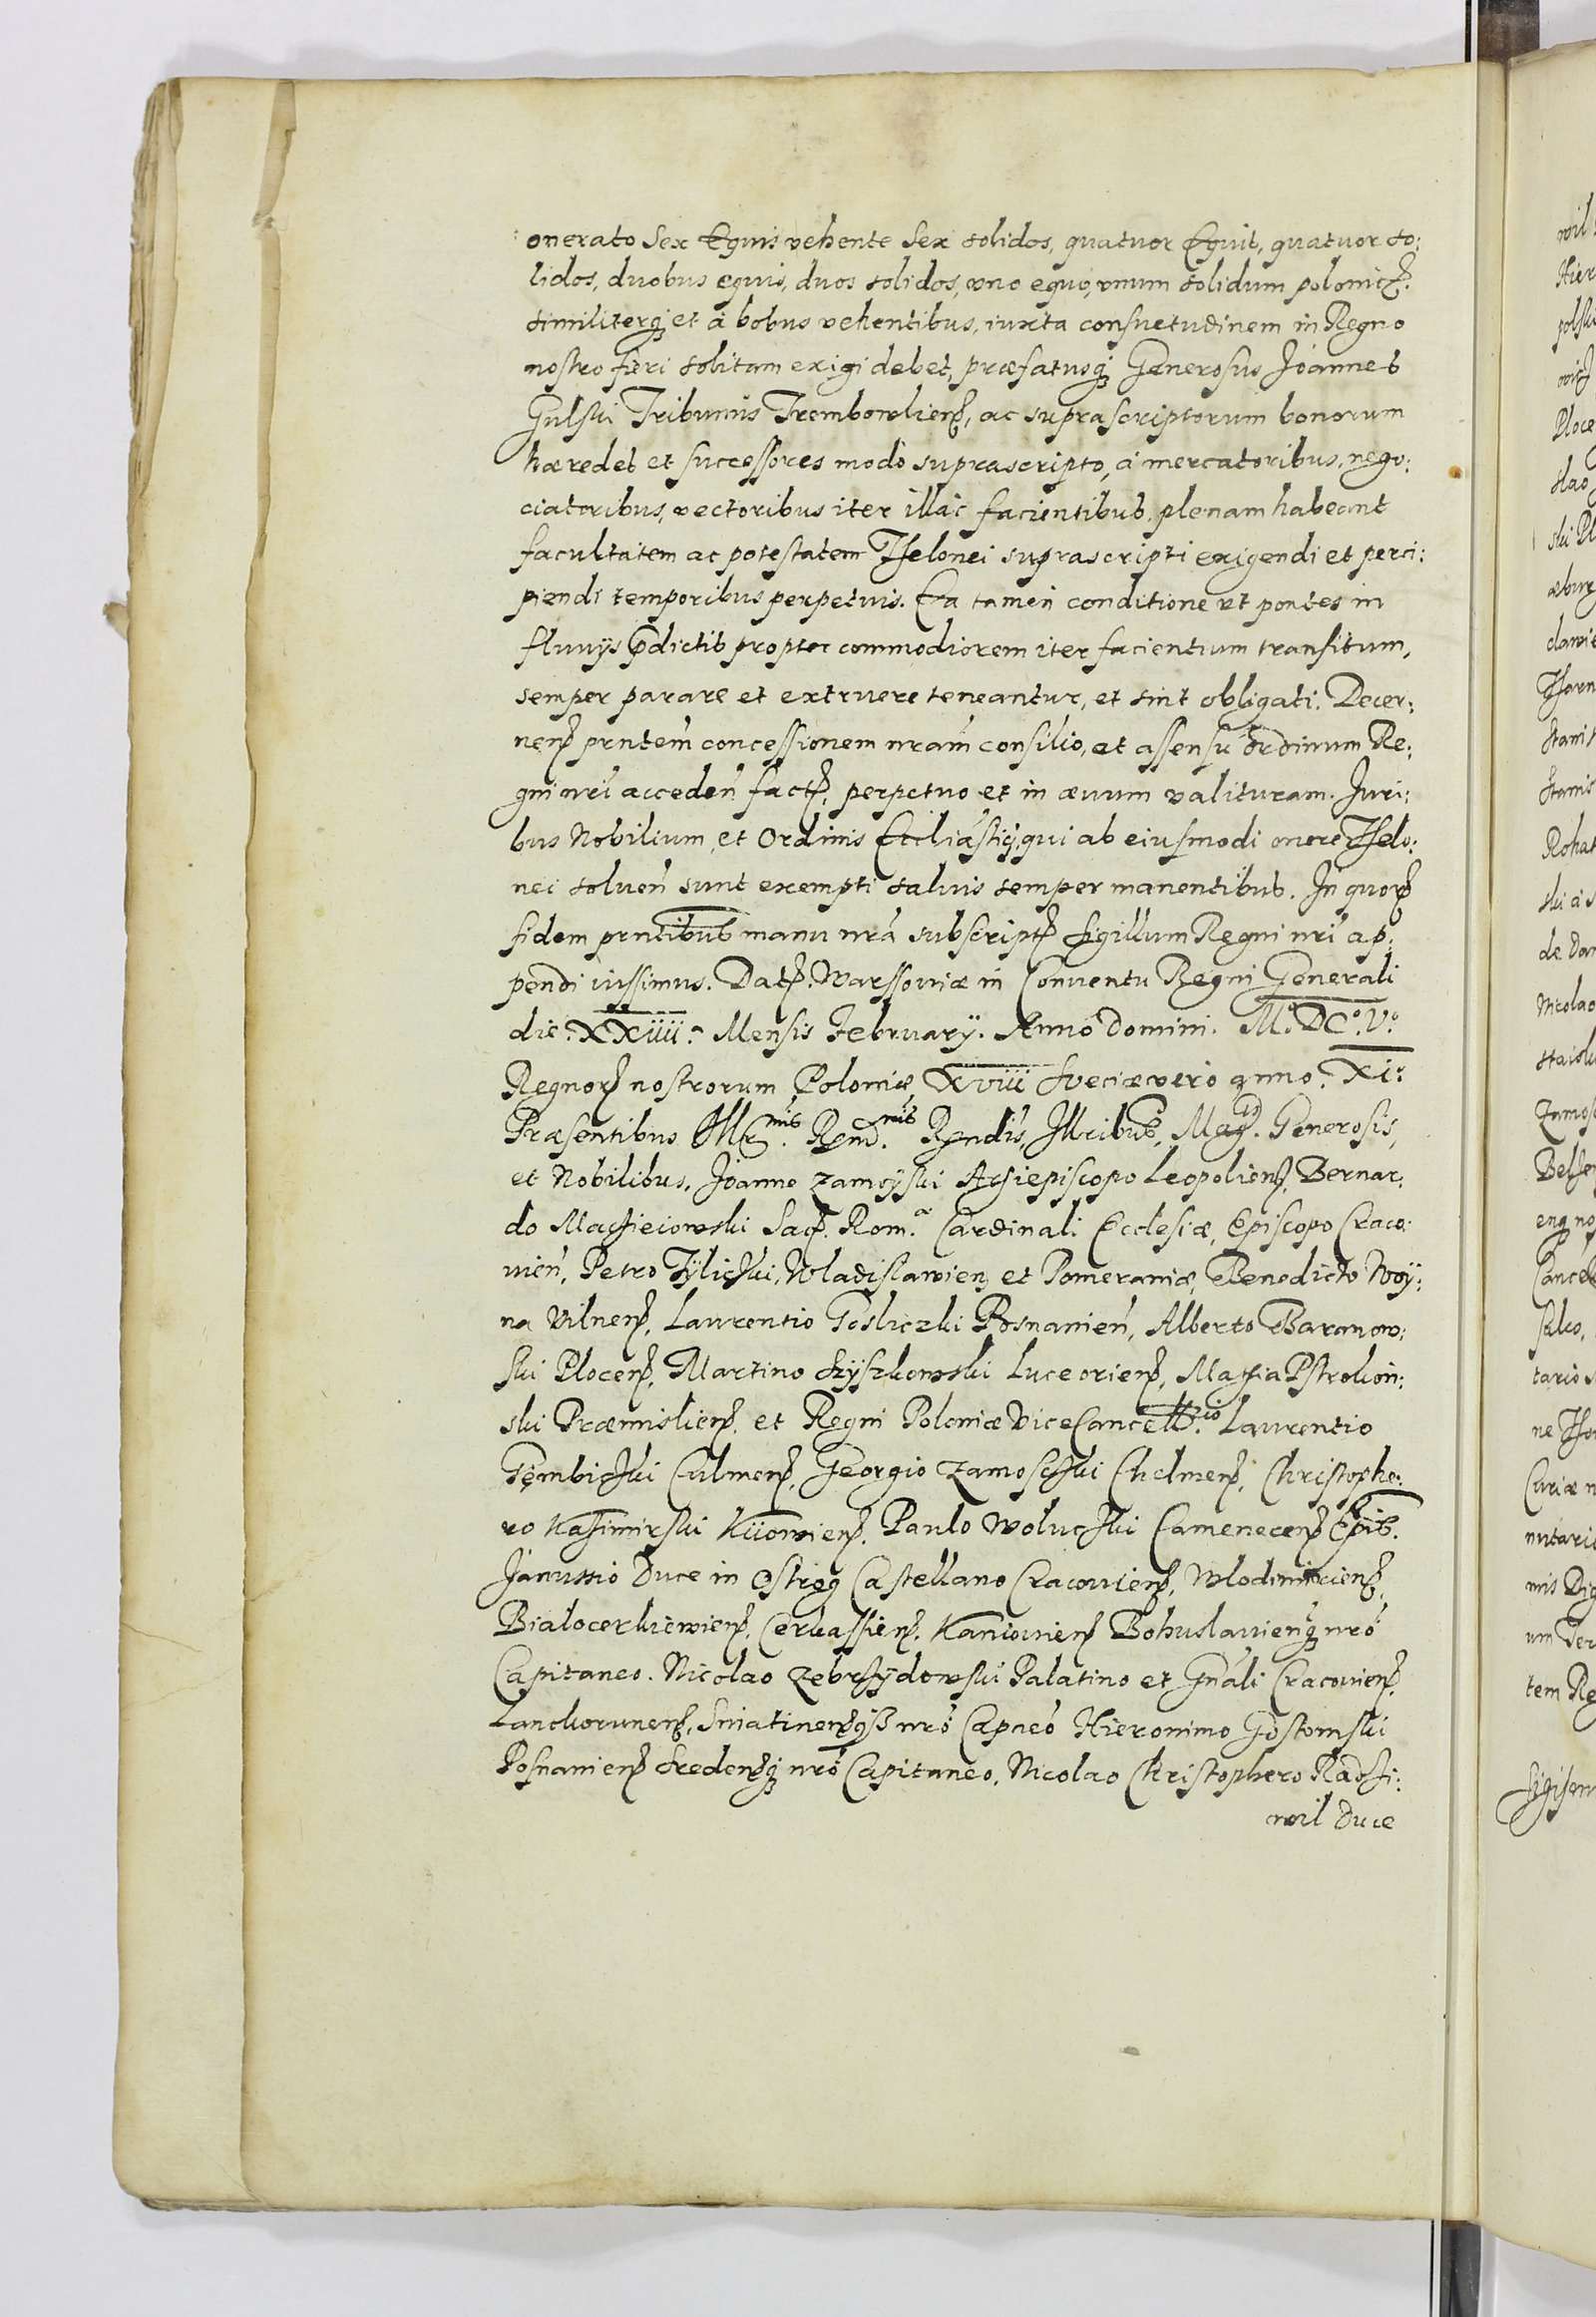 onerato Sex Equis vehente Sex solidos, quatuor Equis, quatuor so:
lidos, duobus equis, duos solidos, vno equo, vnum solidum polonic.
similiterq; et à bobus vehentibus, iuxta consuetudinem in Regno
nostro fieri solitam exigi debet, præfatusq; Generosus Joannes
Gulski Tribunus Trembowliens, ac suprascriptorum bonorum
hæredes et successores modo suprascripto, à mercatoribus, nego:
ciatoribus, vectoribus iter illàc facientibus, plenam habeant
facultatem ac potestatem Thelonei suprascripti exigendi et perci:
piendi temporibus perpetuis. Ea tamen conditione vt pontes in
fluuijs pdictis propter commodiorem iter facientium transitum,
semper parare et extruere teneantur, et sint obligati. Decer:
nen prntem concessionem nram consilio, et assensu ordinum Re:
gni nri acceden fact, perpetuo et in æuum valituram. Juri:
bus Nobilium, et Ordinis Eccliastici, qui ab eiusmodi onere Thelo:
nei soluen sunt exempti saluis semper manentibus. In quor
fidem prntibus manu nra subscript Sigillum Regni nri ap:
pendi iussimus. Dat. Warssouiæ in Conuentu Regni Generali
die. XXiiii. Mensis February. Anno Domini. M.DC.V.
Regnor nostrorum Poloniæ XViii Sveciæ vero anno. XI.
Præsentibus Illr.mis Rnd.mis Rndis, Illribus, Mag.cis Generosis,
et Nobilibus, Joanne Zamoyski Archiepiscopo Leopoliens, Bernar:
do Macieiowski Sac. Rom.æ Cardinali Ecclesiæ, Episcopo Craco:
uien, Petro Tylicki, Wladislauien et Pomeraniæ, Benedicto Woy:
na Vilnens, Laurentio Gosliczki Posnanien, Alberto Baranow:
ski Plocens, Martino Szyszkowski Luceoriens, Mathia Pstrokon:
ski Præmisliens. et Regni Poloniæ ViceCancellrio. Laurentio
Gembicki Culmens, Georgio Zamoscki Chelmens, Christopho:
ro Kazimirski Kiiouiens, Paulo Wolucki Camenecens Epis.
Janussio Duce in Ostrog Castellano Cracouiens, Wlodimiriens,
Bialocerkiewiens, Cerkassiens, Kaniouiens Bohuslauiensq; nro
Capitaneo. Nicolao Zebrzydowski Palatino et Gnali Cracouiens,
Lanckorunens, Sniatinensq; nro Capneo Hieronimo Gostomski
Posnaniens Sredensq; nro Capitaneo, Nicolao Christophero Radzi:
wil Duce